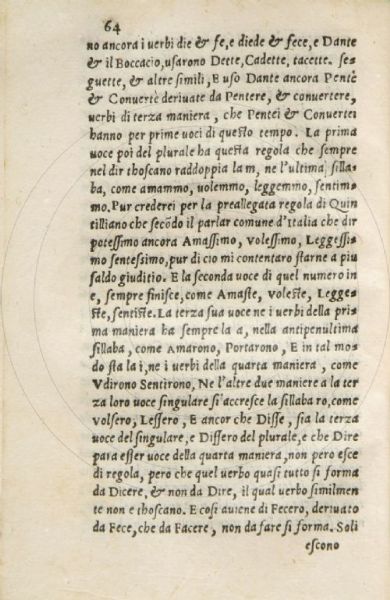 64
no ancora i uerbi die & fe, e diede & fece, e Dante
& il Boccacio, usarono Dette, Cadette, tacette. se-
guette, & altre simili, E uso Dante ancora Pentè
& Conuertè deriuate da Pentere, & conuertere,
uerbi di terza maniera, che Pentei & Conuertei
hanno per prime uoci di questo tempo. La prima
uoce poi del plurale ha questa regola che sempre
nel dir thoscano raddoppia la m, ne l'ultima silla-
ba, come amammo, uolemmo, leggemmo, sentim-
mo. Pur crederei per la preallegata regola di Quin
tilliano che secōdo il parlar comune d'Italia che dir
potessimo ancora Amassimo, volessimo, Leggessi-
mo sentessimo, pur di cio mi contentaro starne a piu
saldo giuditio. E la seconda uoce di quel numero in
e, sempre finisce, come Amaste, voleste, Legge-
ste, sentiste. La terza sua uoce ne i uerbi della pri
ma maniera ha sempre la a, nella antipenultima
sillaba, come Amarono, Portarono, E in tal mo-
do sta la i, ne i uerbi della quarta maniera, come
Vdirono Sentirono, Ne l'altre due maniere a la ter
za loro uoce singulare si accresce la sillaba ro, come
volsero, Lessero, E ancor che Disse, sia la terza
uoce del singulare, e Dissero del plurale, e che Dire
para esser uoce della quarta maniera, non pero esce
di regola, pero che quel uerbo quasi tutto si forma
da Dicere, & non da Dire, il qual uerbo similmen
te non e thoscano. E cosi auiene di Fecero, deriuato
da Fece, che da Facere, non da fare si forma. Soli
escono